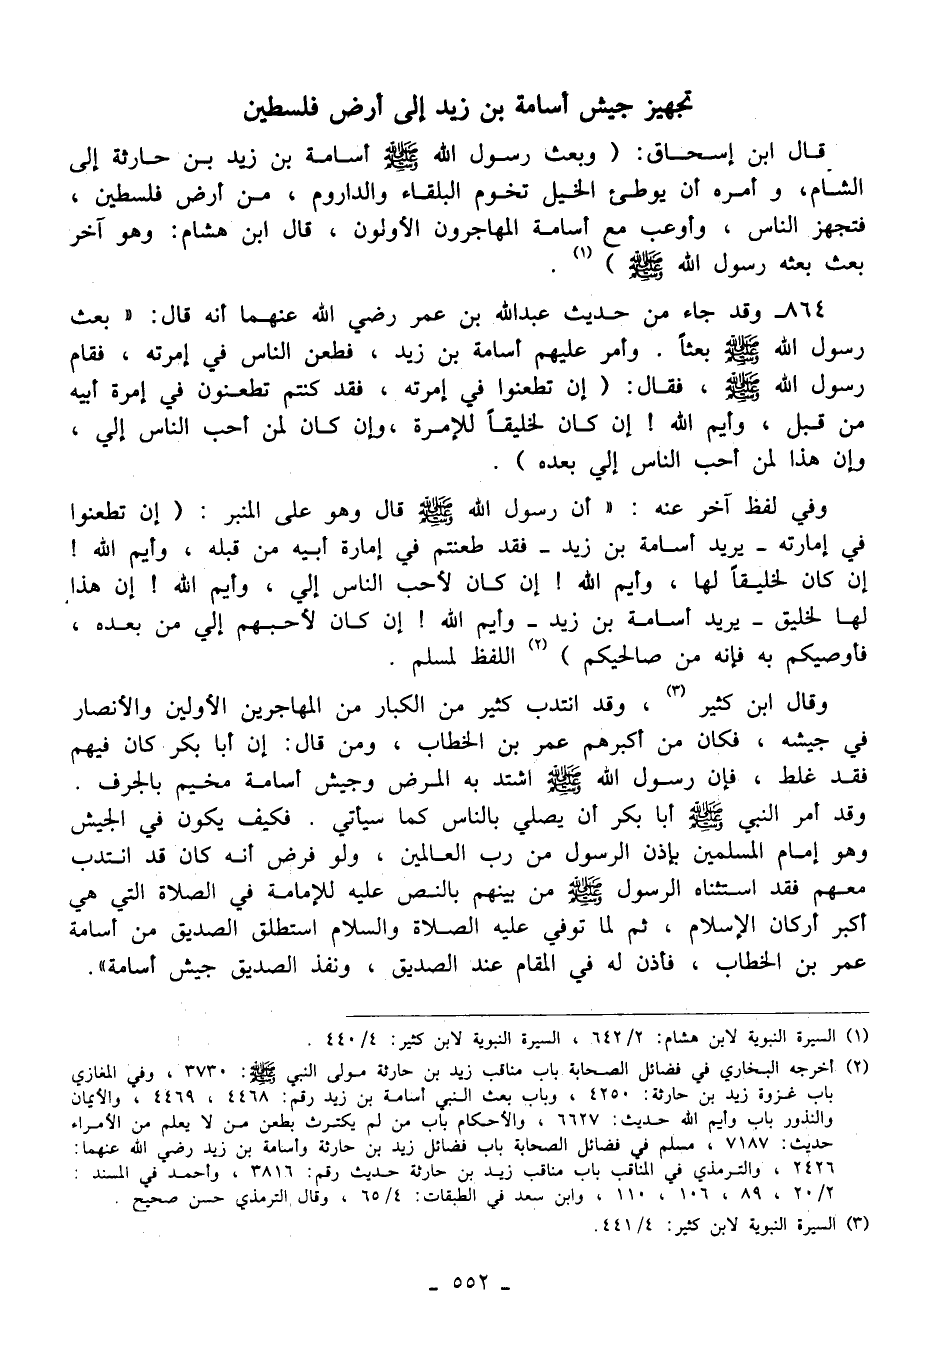 تجهيز جيش أسامة بن زيد إلى أرض فلسطين
قال ابن إسحاق: ( وبعث رسول الله ﷺ أسامة بن زيد بن حارثة إلى
الشام، و أمره أن يوطئ الخيل تخوم البلقاء والداروم ، من أرض فلسطين ،
فتجهز الناس ، وأوعب مع أسامة المهاجرون الأولون ، قال ابن هشام: وهو آخر
بعث بعثه رسول الله ﷺ ) (١) .
٨٦٤ـ وقد جاء من حديث عبدالله بن عمر رضي الله عنهما أنه قال: « بعث
رسول الله ﷺ بعثاً . وأمر عليهم أسامة بن زيد ، فطعن الناس في إمرته ، فقام
رسول الله ﷺ ، فقال: ( إن تطعنوا في إمرته ، فقد كنتم تطعنون في إمرة أبيه
من قبل ، وأيم الله ! إن كان لخليقاً للإمرة ،وإن كان لمن أحب الناس إلي ،
وإن هذا لمن أحب الناس إلي بعده ) .
وفي لفظ آخر عنه : « أن رسول الله ﷺ قال وهو على المنبر : ( إن تطعنوا
في إمارته ـ يريد أسامة بن زيد ـ فقد طعنتم في إمارة أبيه من قبله ، وأيم الله !
إن كان لخليقاً لها ، وأيم الله ! إن كان لأحب الناس إلي ، وأيم الله ! إن هذا
لها لخليق ـ يريد أسامة بن زيد ـ وأيم الله ! إن كان لأحبهم إلي من بعده ،
فأوصيكم به فإنه من صالحيكم ) (٢) اللفظ لمسلم .
وقال ابن كثير (٣) ، وقد انتدب كثير من الكبار من المهاجرين الأولين والأنصار
في جيشه ، فكان من أكبرهم عمر بن الخطاب ، ومن قال: إن أبا بكر كان فيهم
فقد غلط ، فإن رسول الله ﷺ اشتد به المرض وجيش أسامة مخيم بالجرف .
وقد أمر النبي ﷺ أبا بكر أن يصلي بالناس كما سيأتي . فكيف يكون في الجيش
وهو إمام المسلمين بإذن الرسول من رب العالمين ، ولو فرض أنه كان قد انتدب
معهم فقد استثناه الرسول ﷺ من بينهم بالنص عليه للإمامة في الصلاة التي هي
أكبر أركان الإسلام ، ثم لما توفي عليه الصلاة والسلام استطلق الصديق من أسامة
عمر بن الخطاب ، فأذن له في المقام عند الصديق ، ونفذ الصديق جيش أسامة».
(١) السيرة النبوية لابن هشام: ٦٤٢/٢ ، السيرة النبوية لابن كثير: ٤٤٠/٤ .
(٢) أخرجه البخاري في فضائل الصحابة باب مناقب زيد بن حارثة مولى النبي ﷺ: ٣٧٣٠ ، وفي المغازي
باب غزوة زيد بن حارثة: ٤٢٥٠ ، وباب بعث النبي أسامة بن زيد رقم: ٤٤٦٨ ، ٤٤٦٩ ، والأيمان
والنذور باب وأيم الله حديث: ٦٦٢٧ ، والأحكام باب من لم يكترث بطعن من لا يعلم من الأمراء
حديث: ٧١٨٧ ، مسلم في فضائل الصحابة باب فضائل زيد بن حارثة وأسامة بن زيد رضي الله عنهما:
٢٤٢٦ ، والترمذي في المناقب باب مناقب زيد بن حارثة حديث رقم: ٣٨١٦ ، وأحمد في المسند :
٢٠/٢ ، ٨٩ ، ١٠٦ ، ١١٠ ، وابن سعد في الطبقات: ٦٥/٤ ، وقال الترمذي حسن صحيح .
(٣) السيرة النبوية لابن كثير: ٤٤١/٤.
ـ ٥٥٢ ـ